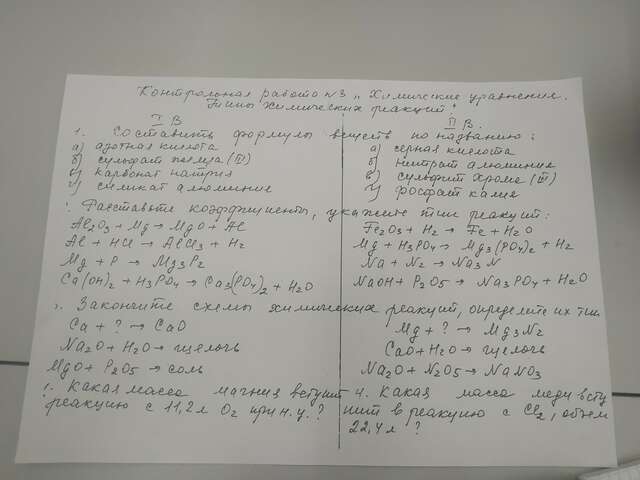 Контрольная работа №3 „Химические уравнения.
Типы химических реакций".
I В
1. Составить формулы веществ по названию:
а) азотная кислота
б) сульфат железа (III)
в) карбонат натрия
г) силикат алюминия
II В.
а) серная кислота
б) нитрат алюминия
в) сульфит хрома (III)
г) фосфат калия
Расставьте коэффициенты, укажите тип реакций:
Al2O3 + Mg → MgO + Al
Al + HCl → AlCl3 + H2
Mg + P → Mg3P2
Ca(OH)2 + H3PO4 → Ca3(PO4)2 + H2O
Fe2O3 + H2 → Fe + H2O
Mg + H3PO4 → Mg3(PO4)2 + H2
Na + N2 → Na3N
NaOH + P2O5 → Na3PO4 + H2O
Закончите схемы химических реакций, определите их тип
Ca + ? → CaO
Na2O + H2O → щелочь
MgO + P2O5 → соль
Mg + ? → Mg3N2
CaO + H2O → щелочь
Na2O + N2O5 → NaNO3
Какая масса магния вступит
реакцию с 11,2л O2 при н.у.?
4. Какая масса меди всту
пит в реакцию с Cl2, объем
22,4л ?